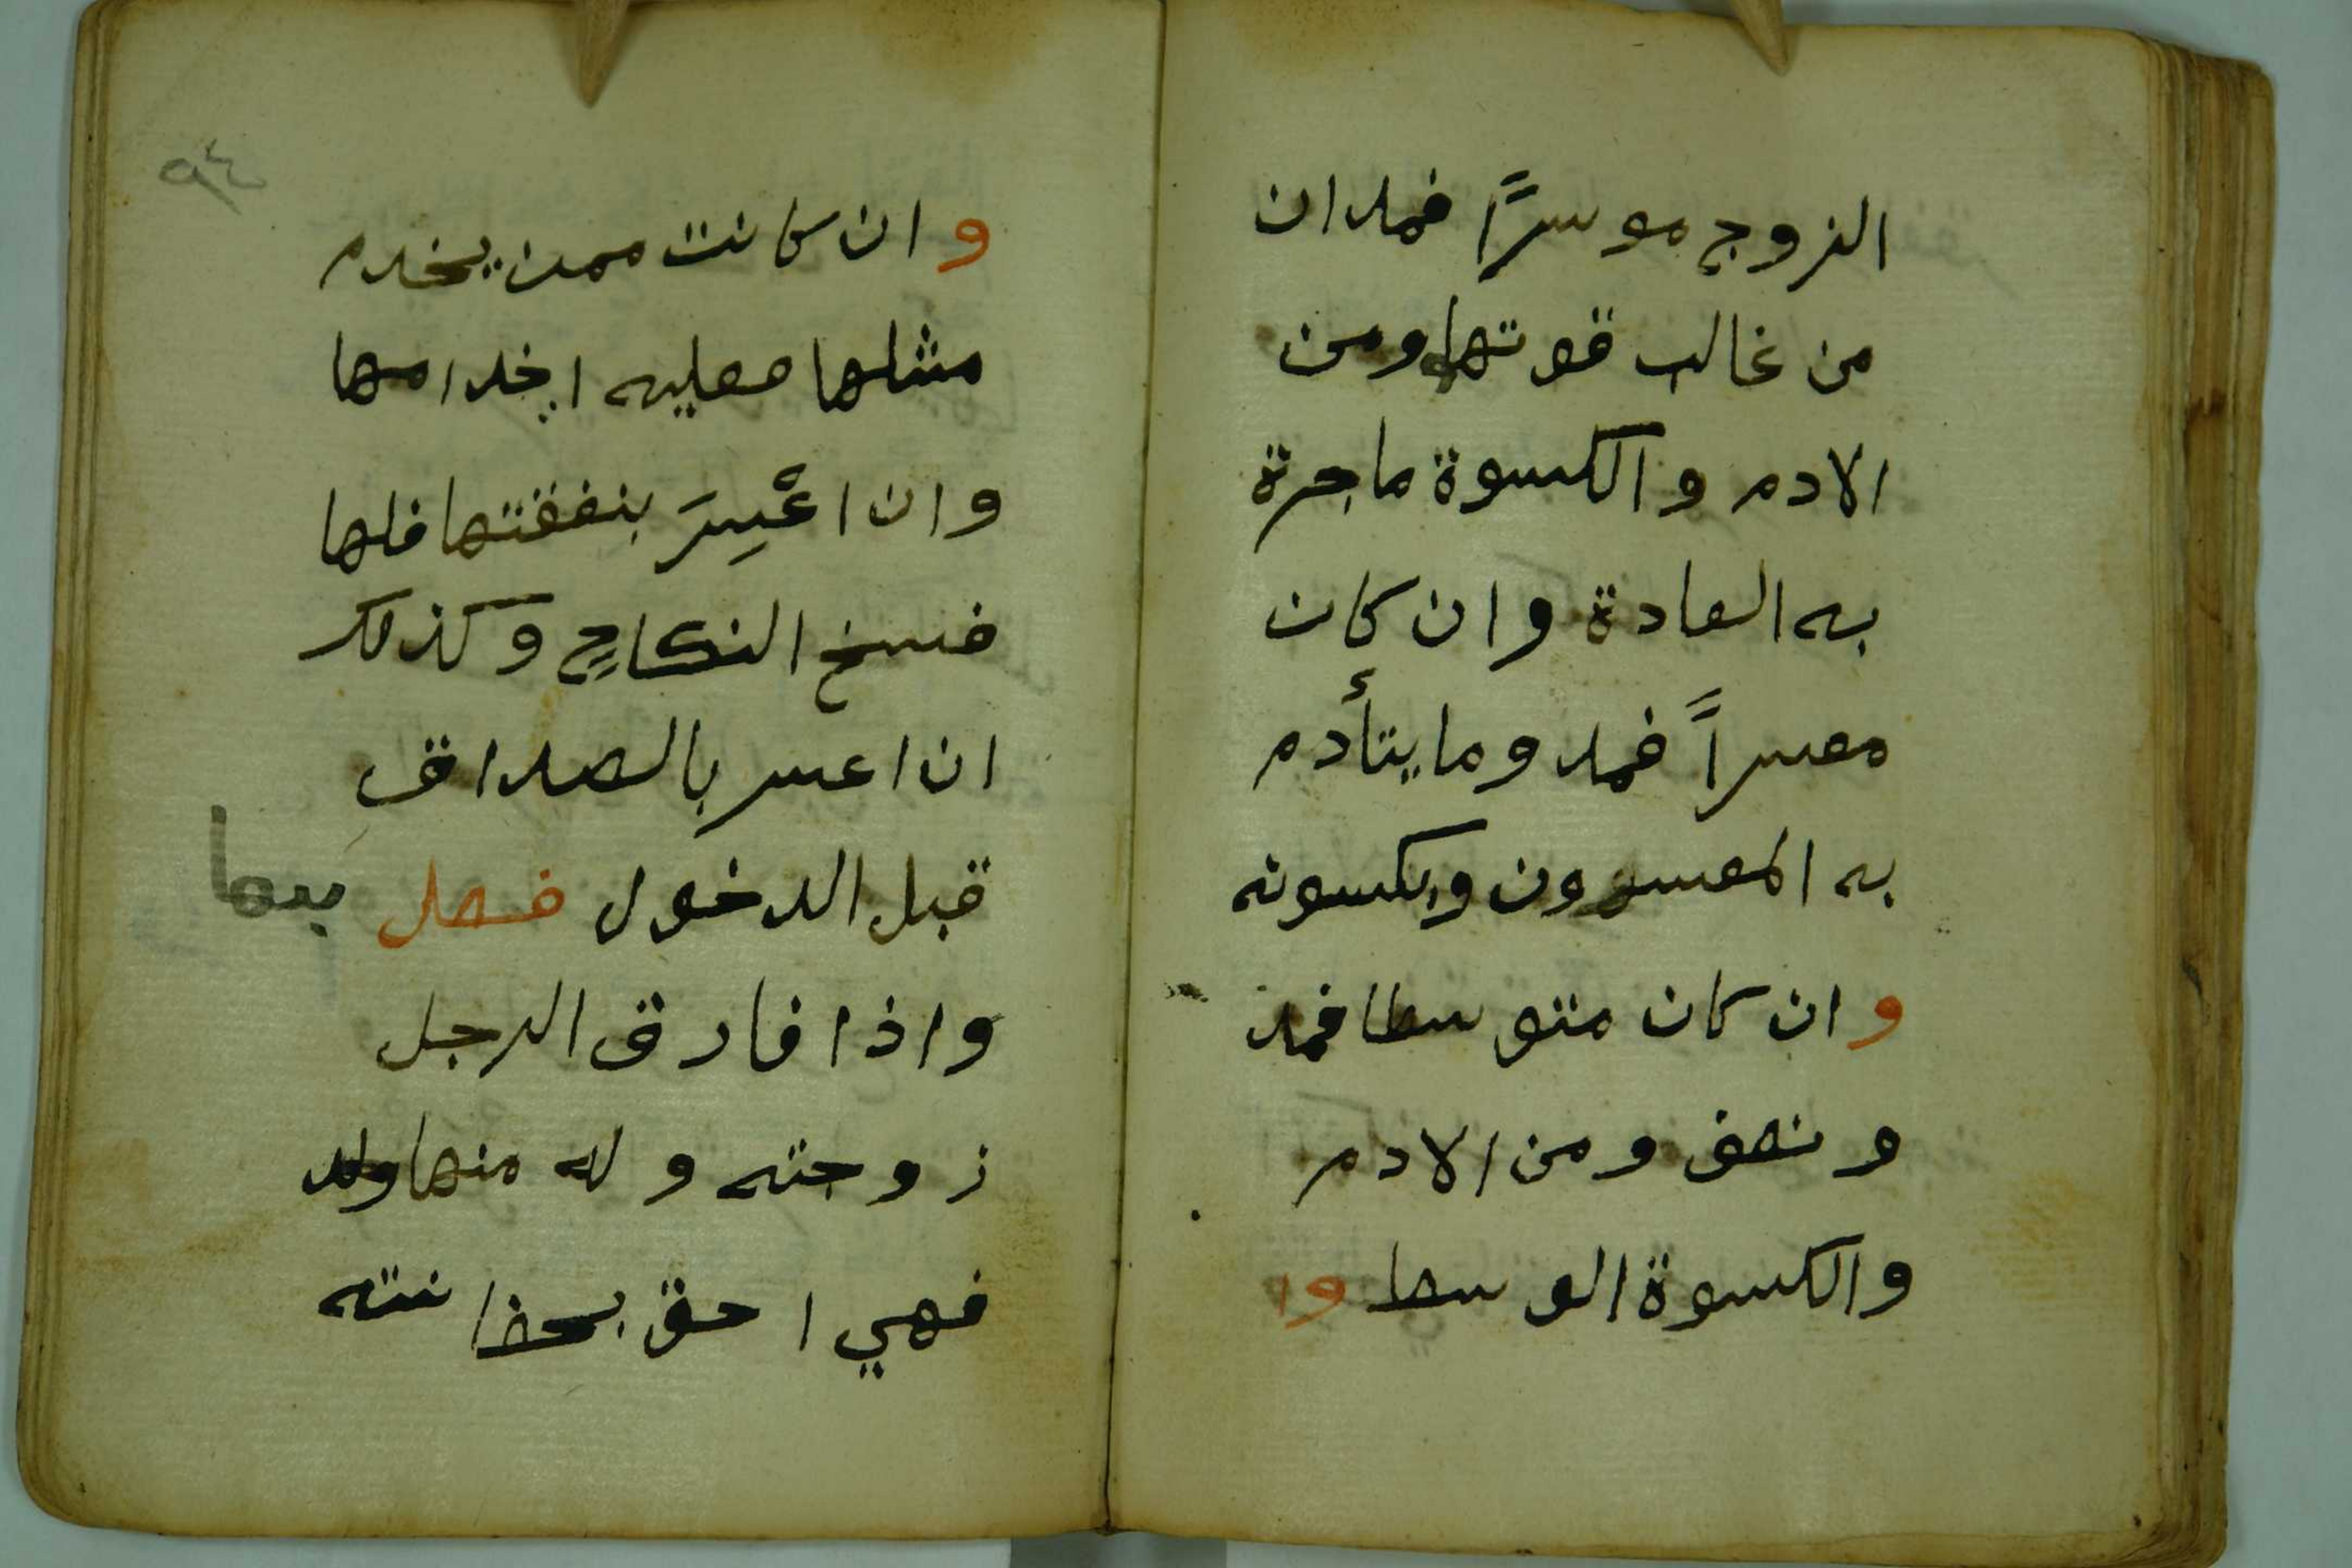 الزوج موسرًا فمدان
من غالب قوتها ومن
الادم والكسوة ماجرة
به العادة وان كان
معسراً فمد وما يتأدم
به المعسرون ويكسونه
وان كان متوسطا فمد
و نصف ومن الادم
والكسوة الوسط وا
٩٤
وان كانت ممن يخدم
مثلها فعليه اخدامها
وان اعْسِرَ بنفقتها فلها
فسخ النكاح وكذلك
ان اعسر بالصداق
قبل الدخول فصل
واذا فارق الرجل
زوجته وله منها ولد
فهي احق بحضانته